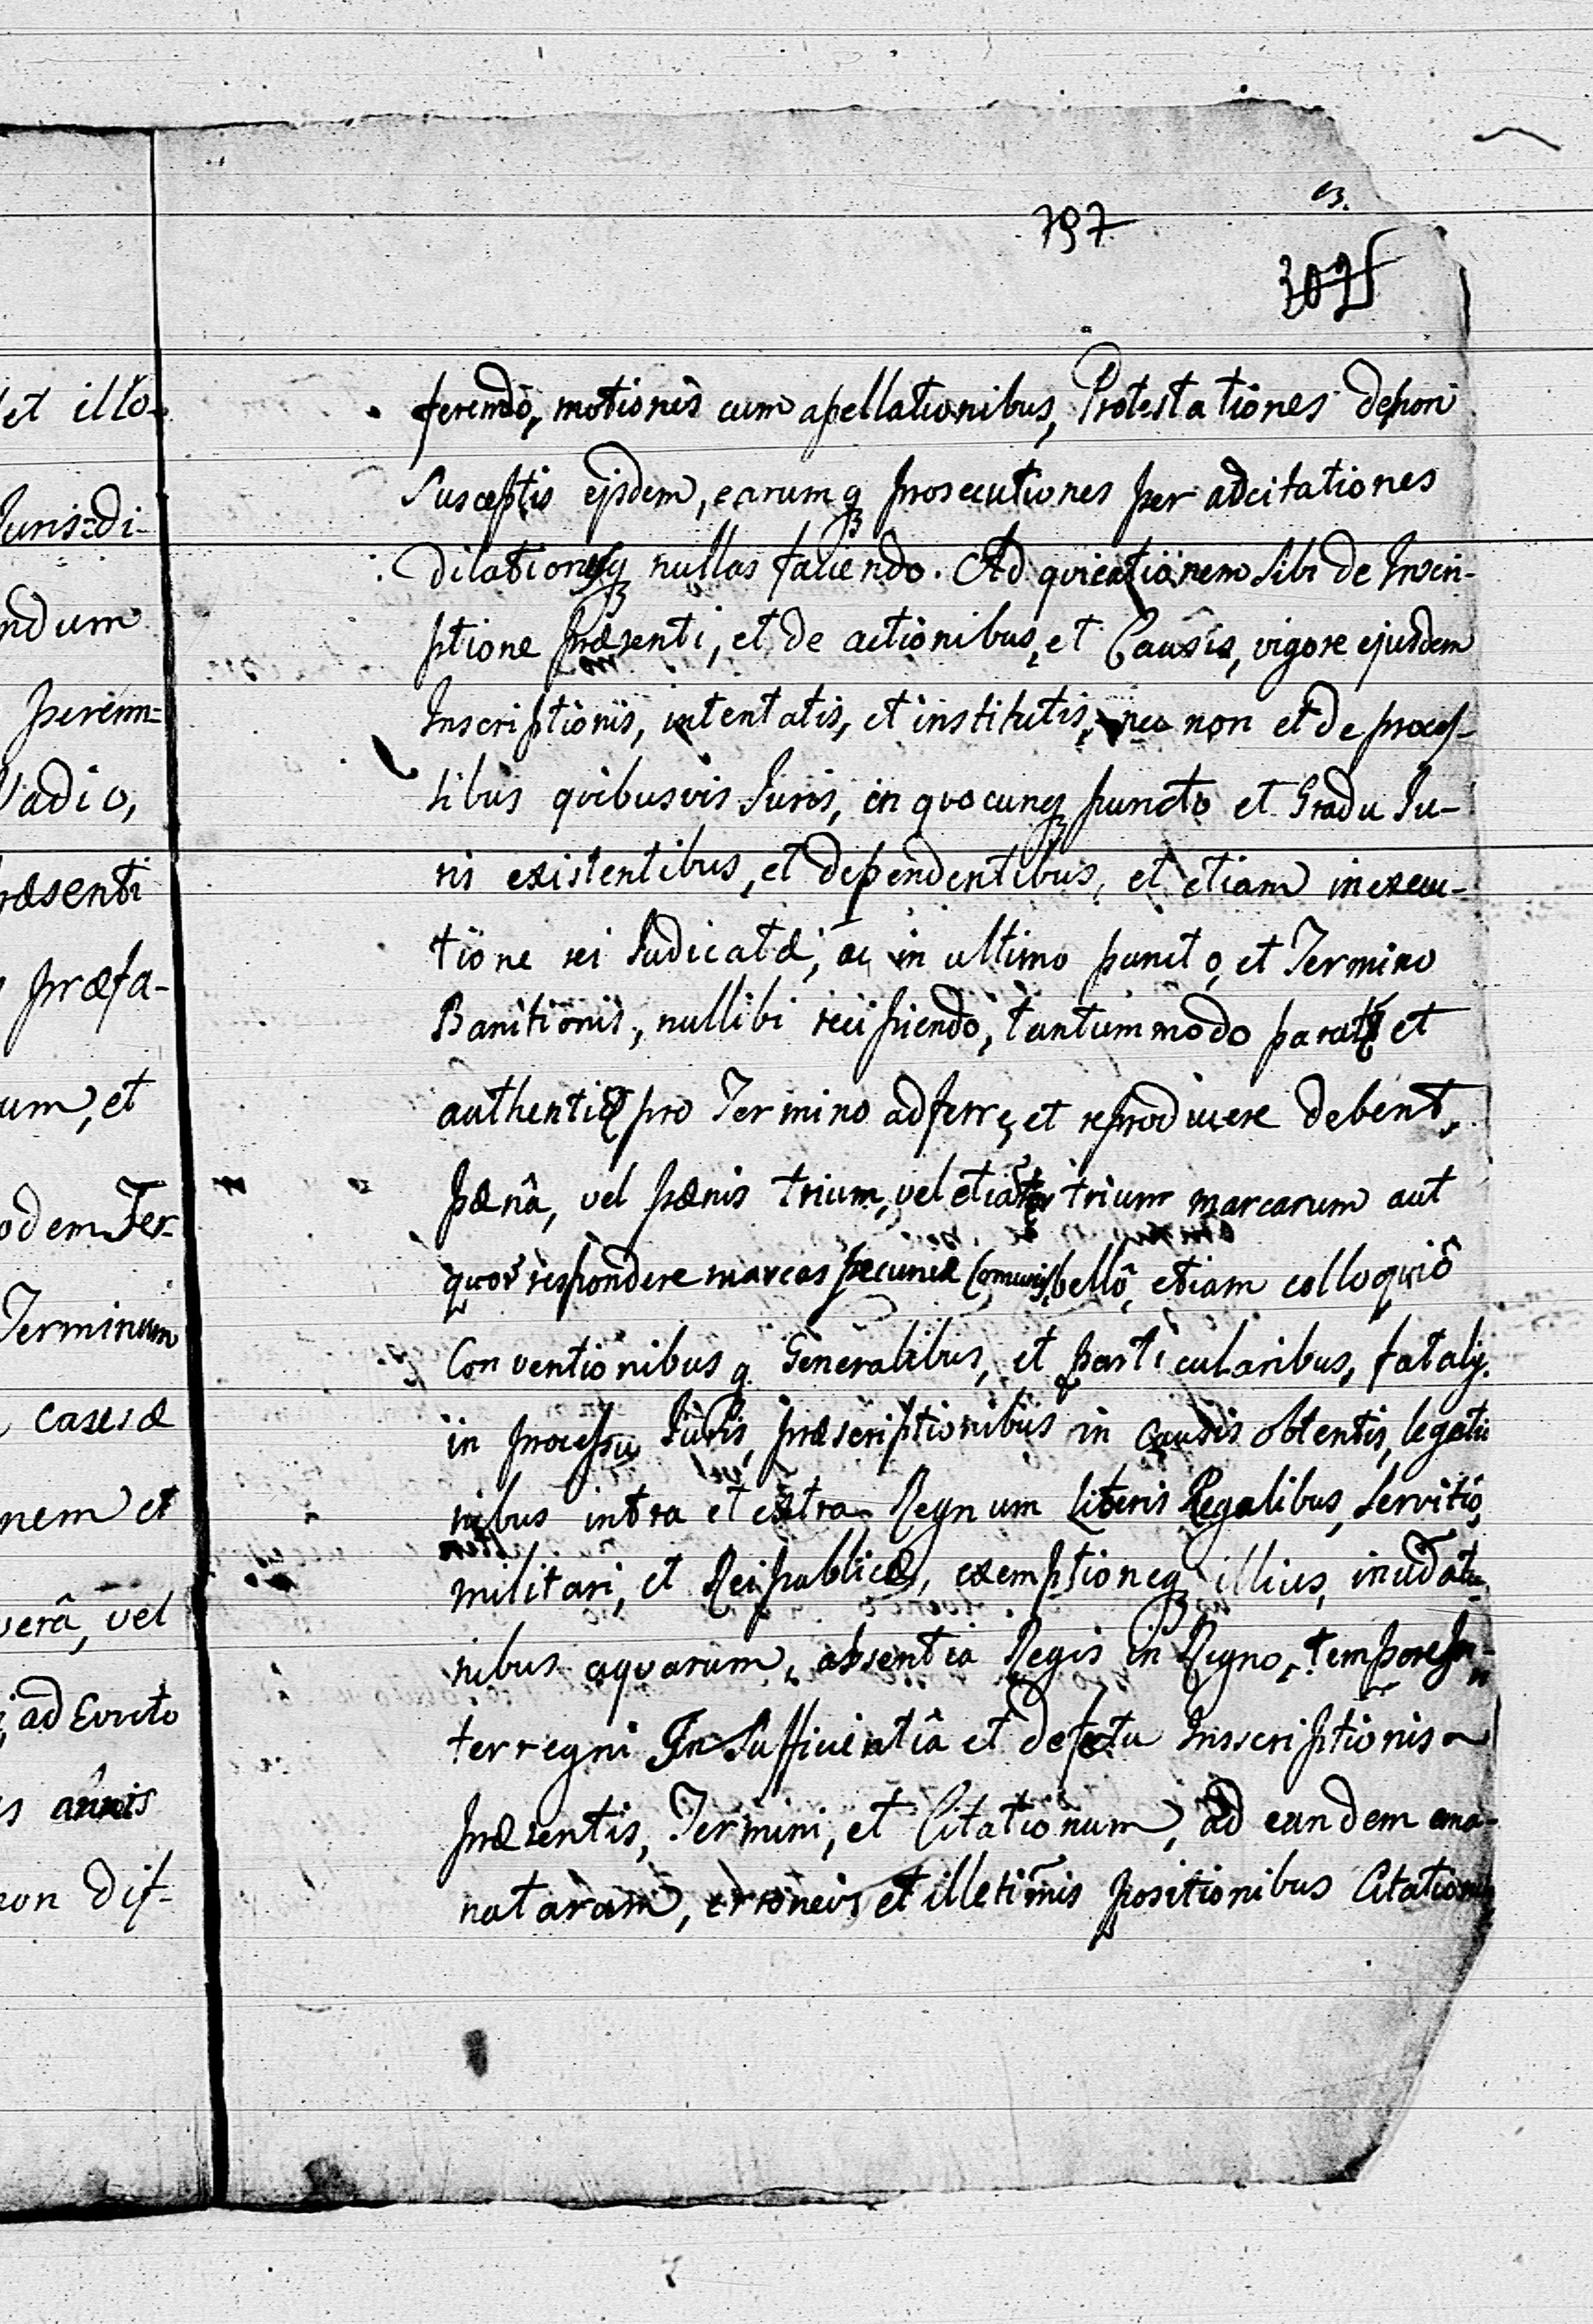 797
et illo-
Juris:di-
ndum
peremn=
Vadio,
ræsenti
præfa-
um, et
odem Ter-
Terminum
casus æ
nem et
verâ, vel
ad Evicto
s annis
non dif-
ferendo, motionis cum apellationibus, Protestationes deponi
susceptis ejsdem, earumq3 prosecutiones per adcitationes
dilationesq3 nullas faciendo. Ad qvietationem sibi de Inscri-
ptione præsenti, et de actionibus, et Causis, vigore ejusdem
Inscriptionis, intentatis, et institutis, nec non et de proces-
sibus qvibusvis Juris, in qvocunq3 puncto et Gradu Ju-
ris existentibus, et dependentibus, et etiam in execu-
tione rei Judicatæ, ac in ultimo puncto, et Termino
Banitionis, nullibi recipiendo, tantummodo paratæ et
authenticæ pro Termino adferre, et reproducere debent,
pænâ, vel pænis trium, vel etiam trium marcarum aut
respondere marcas pecuniæ bellô, etiam colloqviô
Conventionibusq Generalibus, et particularibus, fatalij.
in processu Juris, præscriptionibus in causis obtentis, legatio
nibus intra et extra Regnum Literis Regalibus, Servitio,
militari, et Reipublicæ, exemptioneq3 illius, inudatio
nibus aqvarum, absentia Regis in Regno, tempore In-
terregni In Sufficientiâ et defectu Insscriptionis
præsentis, Termini, et Citationum, ad eandem ema-
natarum, erroneis et illetimis positionibus Citationis